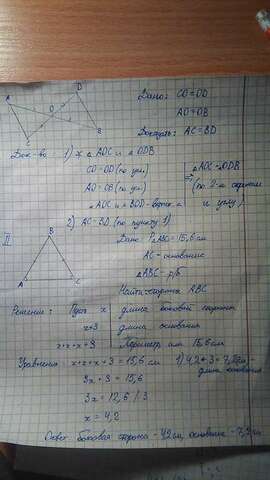 Дано: CO=OD
AO=OB
Доказать: AC=BD
D
A
O
C
B
Док-во 1) △ AOC и △ ODB
CO=OD (по усл.)
AO=OB (по усл.)
∠AOC и ∠BOD - вертик.
△AOC=△ODB
(по 2-м сторонам
и углу)
2) AC=BD (по пункту 1)
II
B
A
C
Дано: P△ABC=15,6 см
AC - основание
△ABC - р/б
Найти: стороны ABC
Решение: Пусть x | длина боковой стороны
x+3 | длина основания
x+x+x+3 | периметр или 15,6 см
Уравнение: x+x+x+3=15,6 см
1) 4,2+3=7,2 см -
длина основания
3x+3=15,6
3x=12,6 /3
x=4,2
Ответ: боковая сторона - 4,2 см, основание - 7,2 см